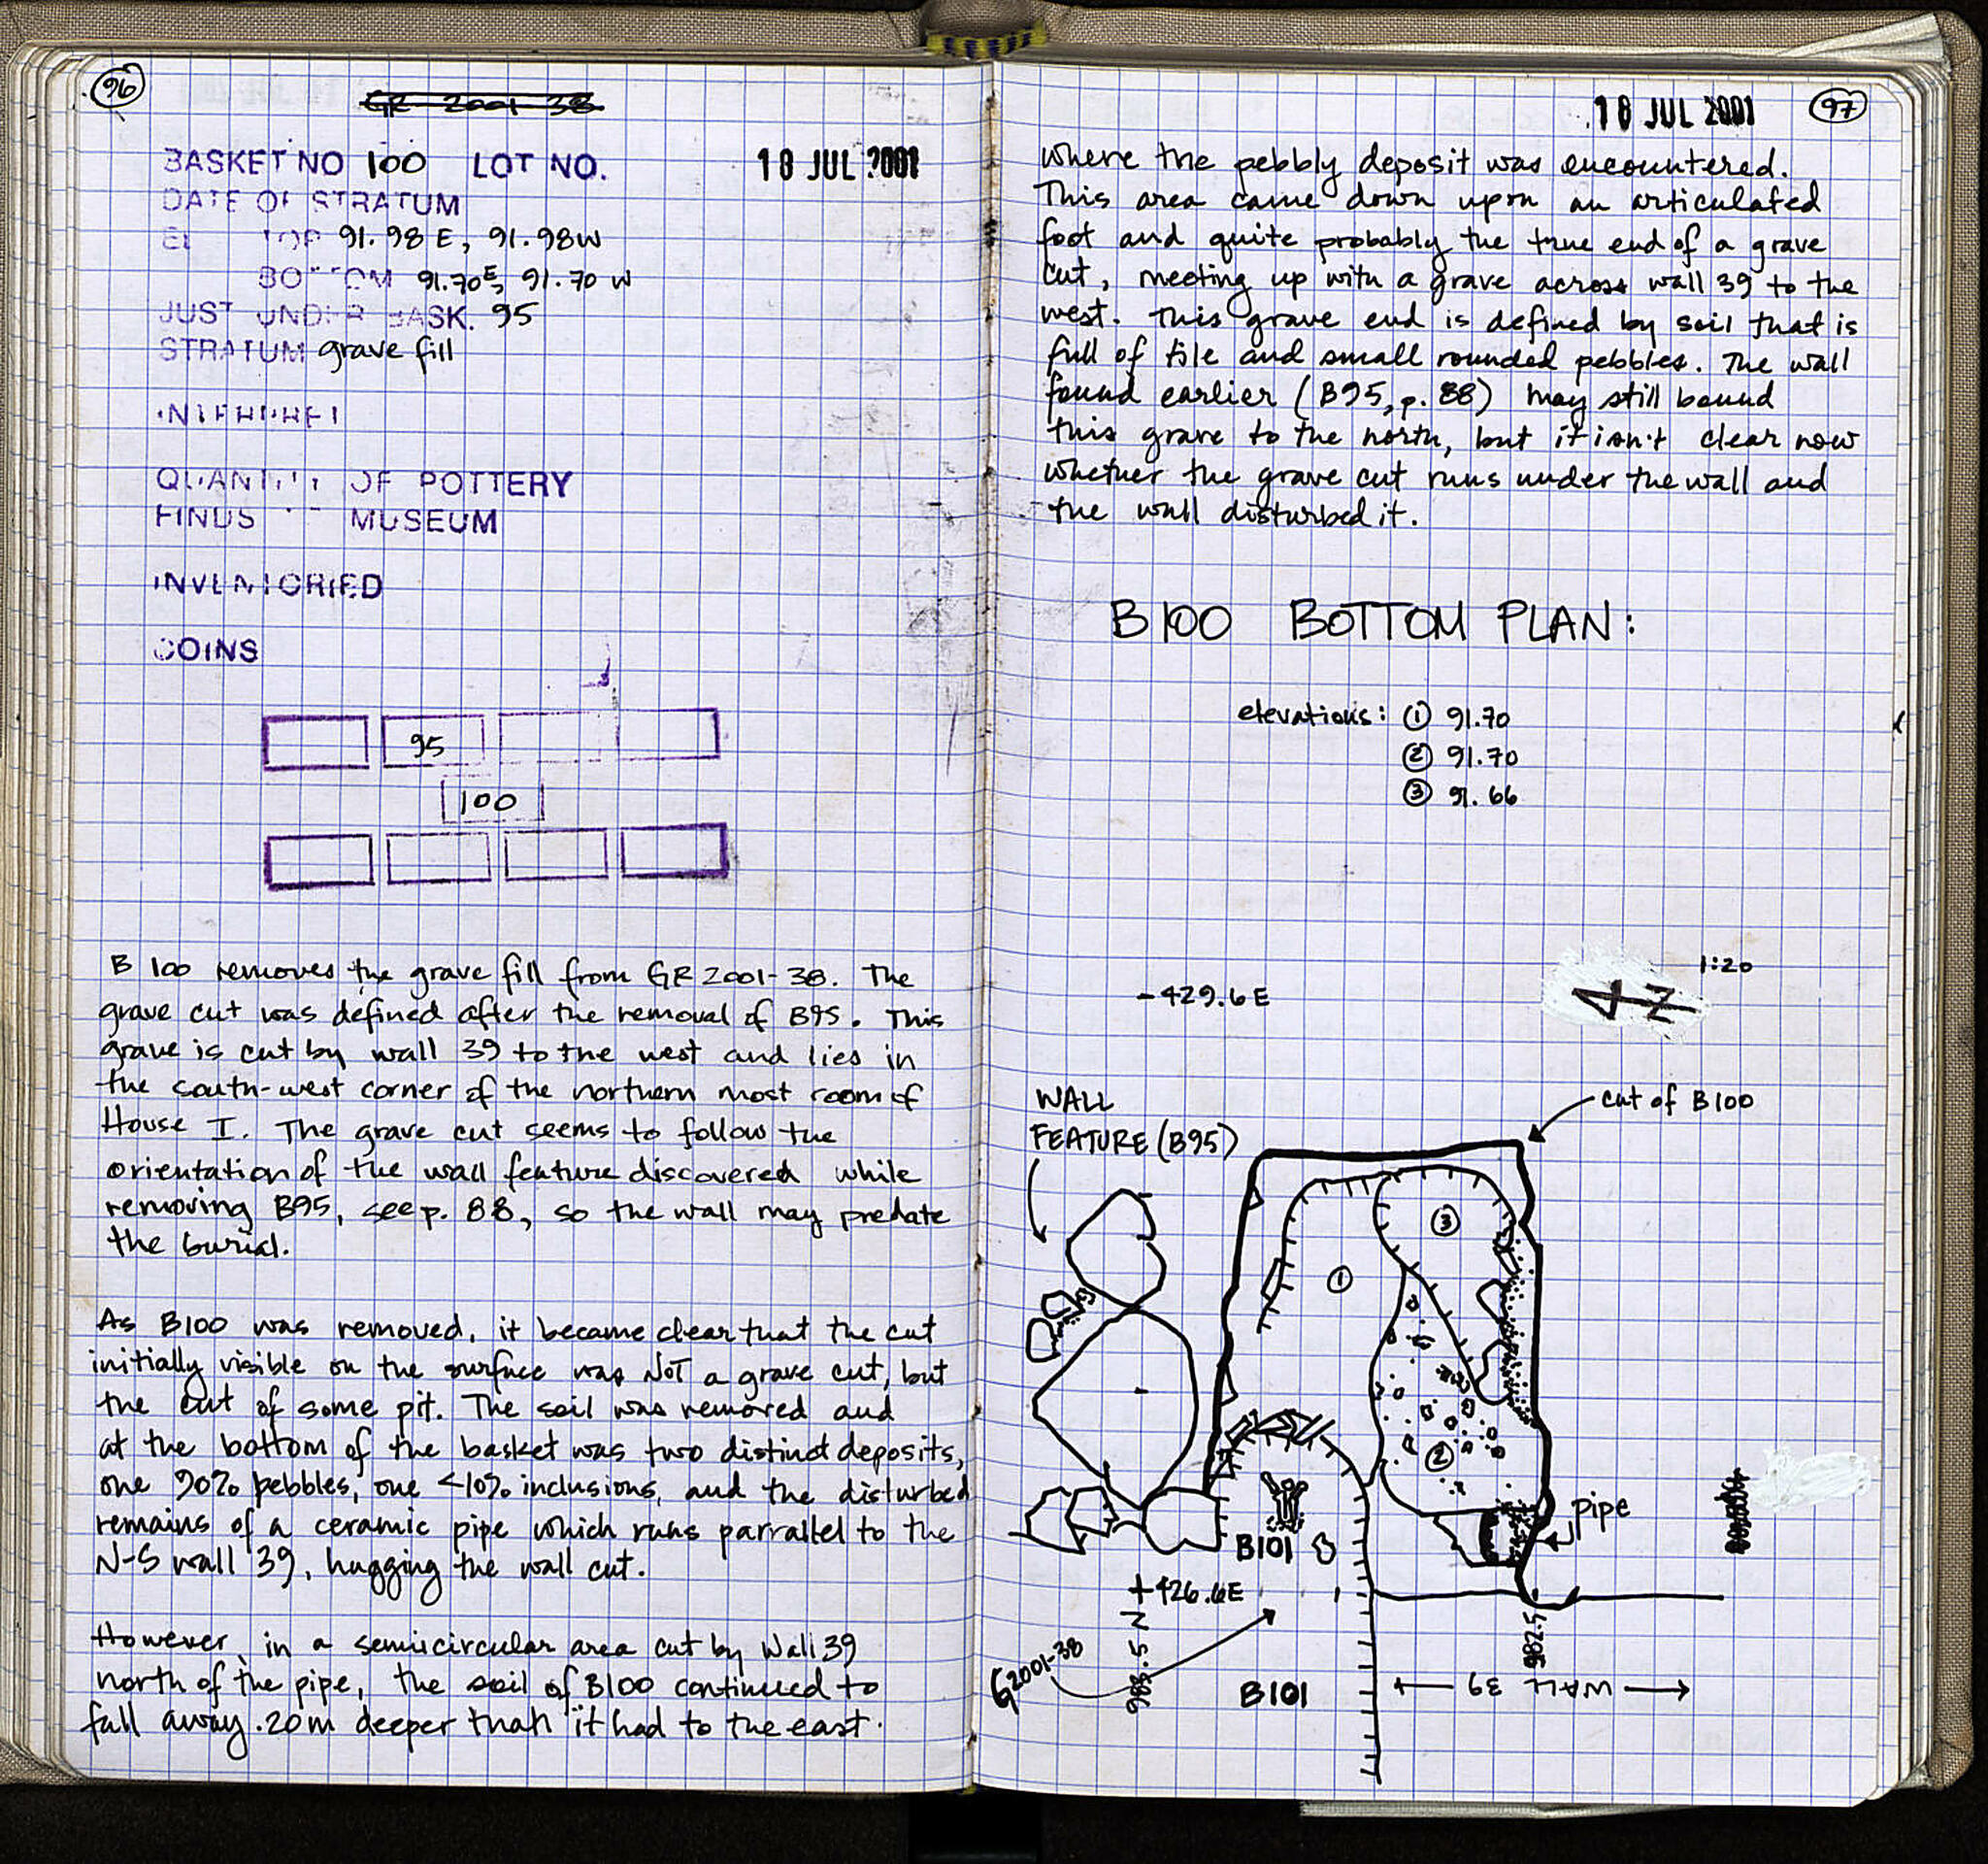 96
GR 2001-38
BASKET NO 100 LOT NO. 18 JUL 2001
DATE OF STRATUM
EL TOP 91.98 E, 91.98 W
BOTTOM 91.70 E, 91.70 W
JUST UNDER BASK. 95
STRATUM grave fill
INTERPRET
QUANTITY OF POTTERY
FINDS MUSEUM
INVENTORIED
COINS
95
100
B 100 removes the grave fill from GR 2001-38. The
grave cut was defined after the removal of B95. This
grave is cut by wall 39 to the west and lies in
the south-west corner of the northern most room of
House I. The grave cut seems to follow the
orientation of the wall feature discovered while
removing B95, see p. 88, so the wall may predate
the burial.
As B100 was removed, it became clear that the cut
initially visible on the surface was NOT a grave cut, but
the cut of some pit. The soil was removed and
at the bottom of the basket was two distinct deposits,
one 90% pebbles, one <10% inclusions, and the disturbed
remains of a ceramic pipe which runs parrallel to the
N-S wall 39, hugging the wall cut.
However, in a semicircular area cut by Wall 39
north of the pipe, the soil of B100 continued to
fall away .20m deeper than it had to the east.
18 JUL 2001 97
where the pebbly deposit was encountered.
This area came down upon an articulated
foot and quite probably the true end of a grave
cut, meeting up with a grave across wall 39 to the
west. This grave end is defined by soil that is
full of tile and small rounded pebbles. The wall
found earlier (B95, p. 88) may still bound
this grave to the north, but it isn't clear now
whether the grave cut runs under the wall and
the wall disturbed it.
B100 BOTTOM PLAN:
elevations: ① 91.70
② 91.70
③ 91.66
1:20
-429.6E
N
WALL
FEATURE (B95)
cut of B100
③
①
②
pipe
B101
+426.6E
G2001-38
988.5 N
982.5
B101
WALL 39